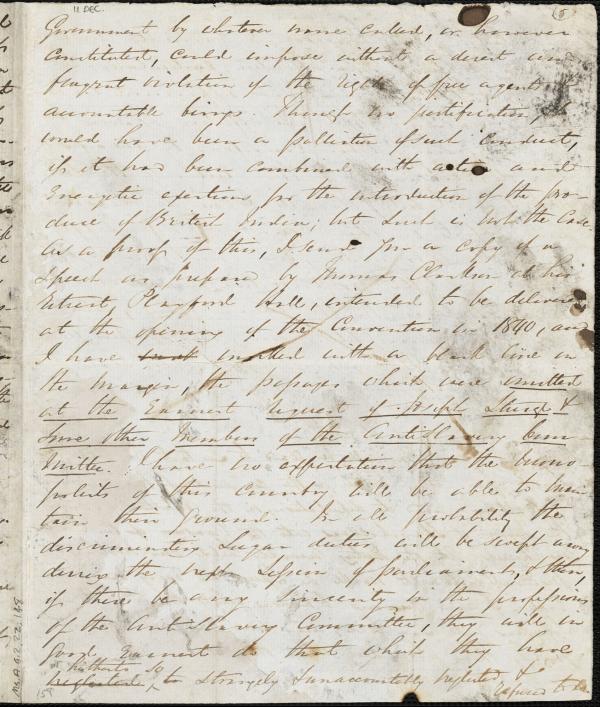 11 DEC.
(5)
Government by whatever name called, or, however
constituted, could impose without a direct and
flagrant violation of the rights of free agents &
accountable beings. Though no justification, it
would have been a palliation of such conduct,
if it had been combined with active and
energetic exertions for the introduction of the pro-
duce of British India; but such is not the case.
As a proof of this, I send you a copy of a
speech as prepared by Thomas Clarkson at his
retreat Playford Hall, intended to be delivered
at the opening of the Convention in 1840, and
I have marked with a black line in
the margin, the passages which were omitted
at the Earnest request of Joseph Sturge &
some other Members of the AntiSlavery Com-
mittee. I have no expectation that the mono-
polists of this country will be able to main-
tain their ground. In all probability the
discriminating Sugar duties will be swept away
during the next Session of parliament, & then,
if there be any sincerity in the professions
of the Anti Slavery Committee, they will in
good Earnest do that which they have
hitherto so
neglected, to strangely & unaccountably neglected, &
refused to do
Ms. A. 1. 2. 22, 148
15